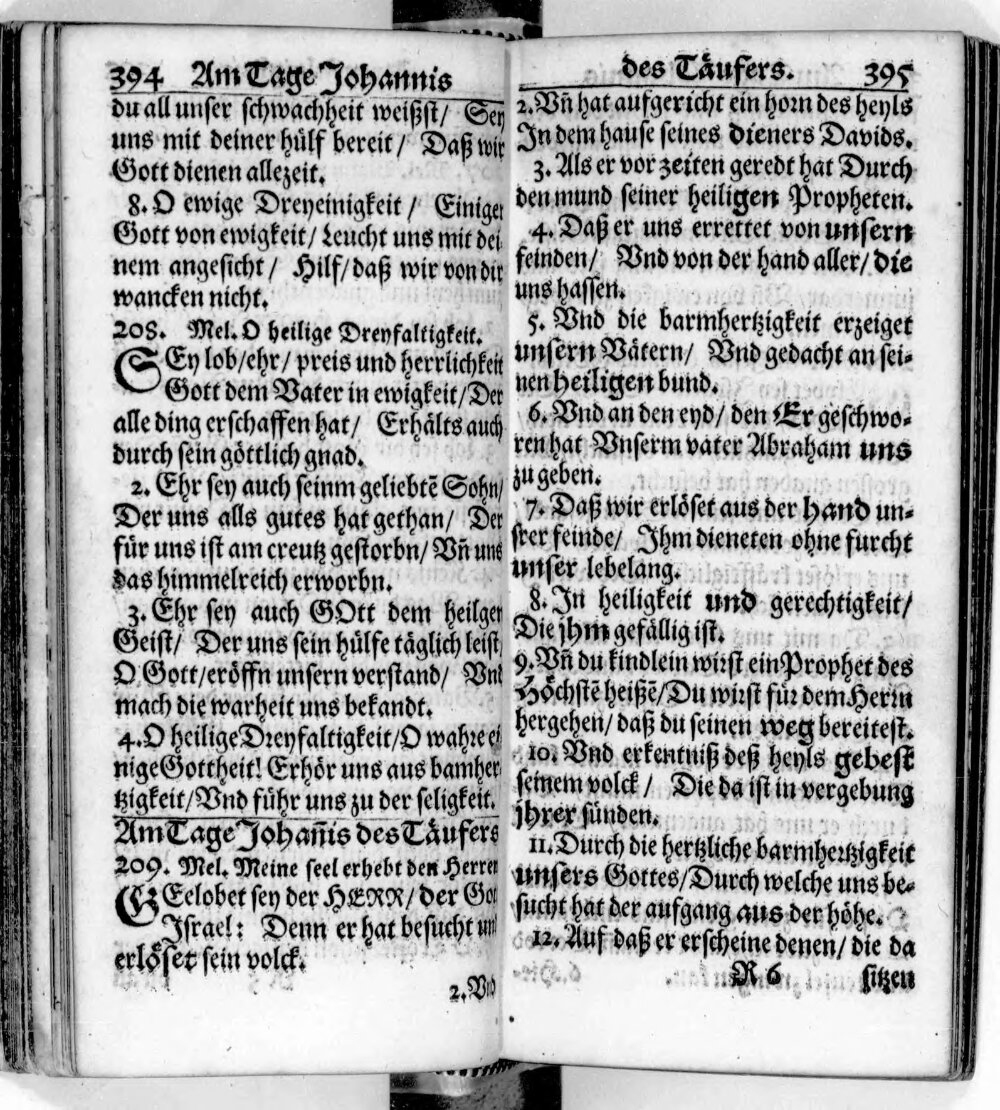 394 Am Tage Johannis
du all unser schwachheit weißst/ Sey
uns mit deiner hülf bereit/ Daß wir
Gott dienen allezeit.
8. O ewige Dreyeinigkeit/ Einiger
Gott von ewigkeit/ Leucht uns mit dei
nem angesicht/ Hilf/ daß wir von dir
wancken nicht.
208. Mel. O heilige Dreyfaltigkeit.
SEy lob/ ehr/ preis und herrlichkeit
Gott dem Vater in ewigkeit/ Der
alle ding erschaffen hat/ Erhälts auch
durch sein göttlich gnad.
2. Ehr sey auch seinm geliebtē Sohn/
Der uns alls gutes hat gethan/ Der
für uns ist am creutz gestorbn/ Vn̄ uns
das himmelreich erworbn.
3. Ehr sey auch GOtt dem heilgen
Geist/ Der uns sein hülfe täglich leist/
O Gott/ eröffn unsern verstand/ Vnd
mach die warheit uns bekandt.
4. O heilige Dreyfaltigkeit/ O wahre ei
nige Gottheit! Erhör uns aus bamher
tzigkeit/ Vnd führ uns zu der seligkeit.
Am Tage Johan̄is des Täufers
209. Mel. Meine seel erhebt den Herren
GEelobet sey der HERR/ der Got
Israel: Denn er hat besucht und
erlöset sein volck.
2. Vnd
des Täufers. 395
2. Vn̄ hat aufgericht ein horn des heyls
In dem hause seines dieners Davids.
3. Als er vor zeiten geredt hat Durch
den mund seiner heiligen Propheten.
4. Daß er uns errettet von unsern
feinden/ Vnd von der hand aller/ die
uns hassen.
5. Vnd die barmhertzigkeit erzeiget
unsern Vätern/ Vnd gedacht an sei-
nen heiligen bund.
6. Vnd an den eyd/ den Er geschwo-
ren hat Vnserm vater Abraham uns
zu geben.
7. Daß wir erlöset aus der hand un-
srer feinde/ Ihm dieneten ohne furcht
unser lebelang.
8. In heiligkeit und gerechtigkeit/
Die jhm gefällig ist.
9. Vn̄ du kindlein wirst ein Prophet des
Höchstē heißē/ Du wirst für dem Herrn
hergehen/ daß du seinen weg bereitest.
10. Vnd erkentniß deß heyls gebest
seinem volck/ Die da ist in vergebung
jhrer sünden.
11. Durch die hertzliche barmhertzigkeit
unsers Gottes/ Durch welche uns be-
sucht hat der aufgang aus der höhe.
12. Auf daß er erscheine denen/ die da
R 6 sitzen